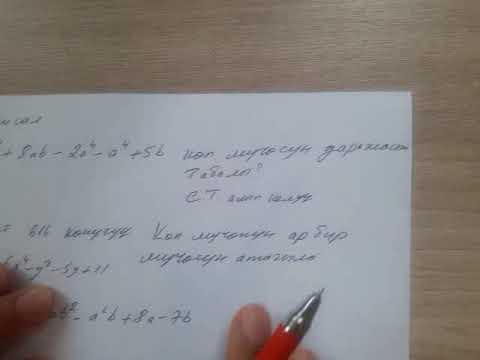 мисал
+ 8ab - 2a⁴ - a⁴ + 5b көп мүчөнүн даражасын
табалы?
СТ алып келүү
= 616 көнүгүү Көп мүчөнүн ар бир
x⁴ - y³ - 5y + 11 мүчөсүн атагыла
ab² - a²b + 8a - 7b